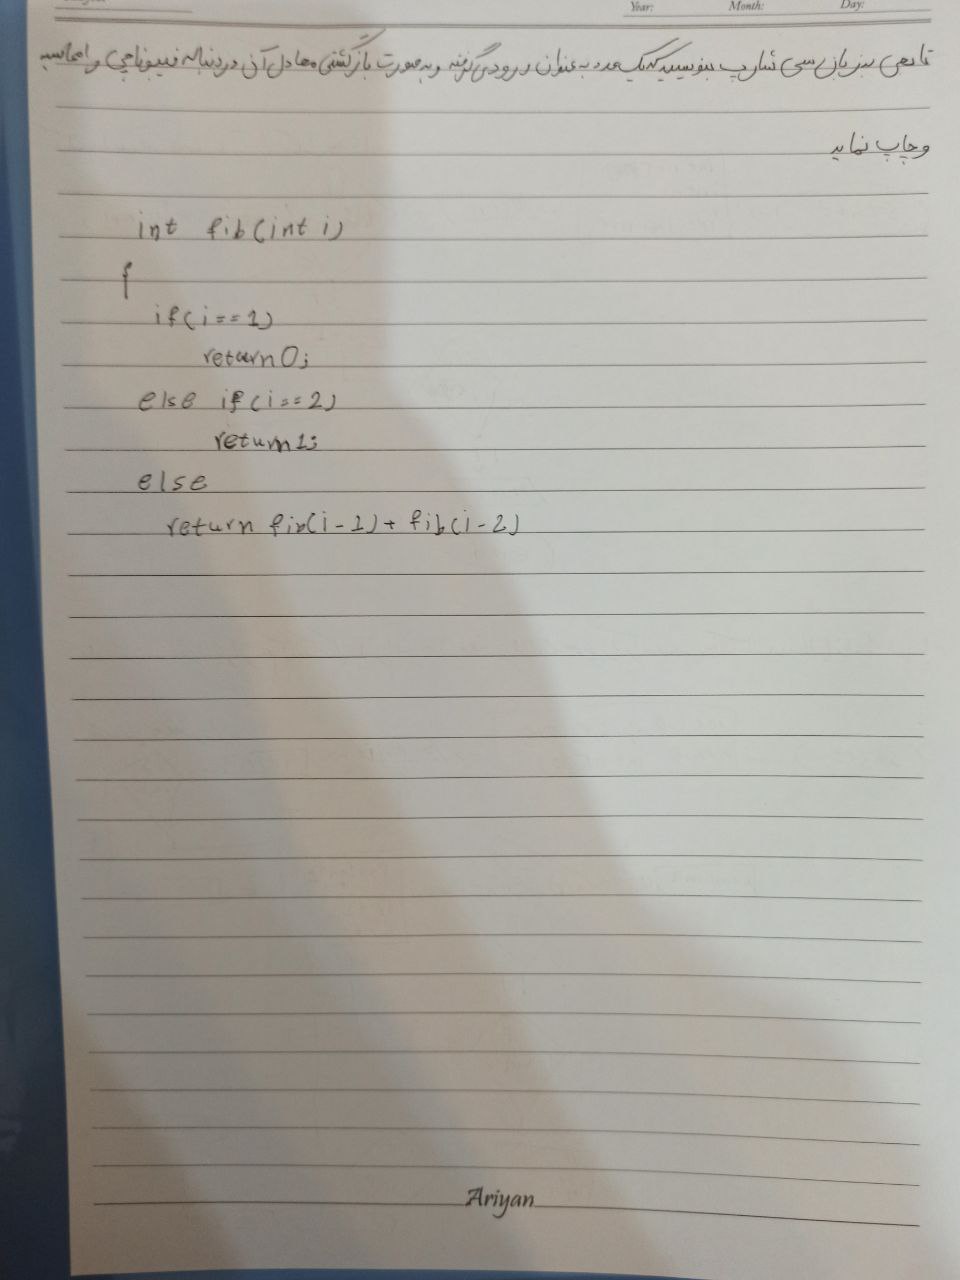 Year: Month: Day:
تابعی به زبان سی شارپ بنویسید که یک عدد به عنوان ورودی گرفته و به صورت بازگشتی معادل آن در دنباله فیبوناچی را محاسبه
و چاپ نماید
int fib(int i)
{
if(i==1)
return 0;
else if(i==2)
return 1;
else
return fib(i-1)+ fib(i-2)
Ariyan